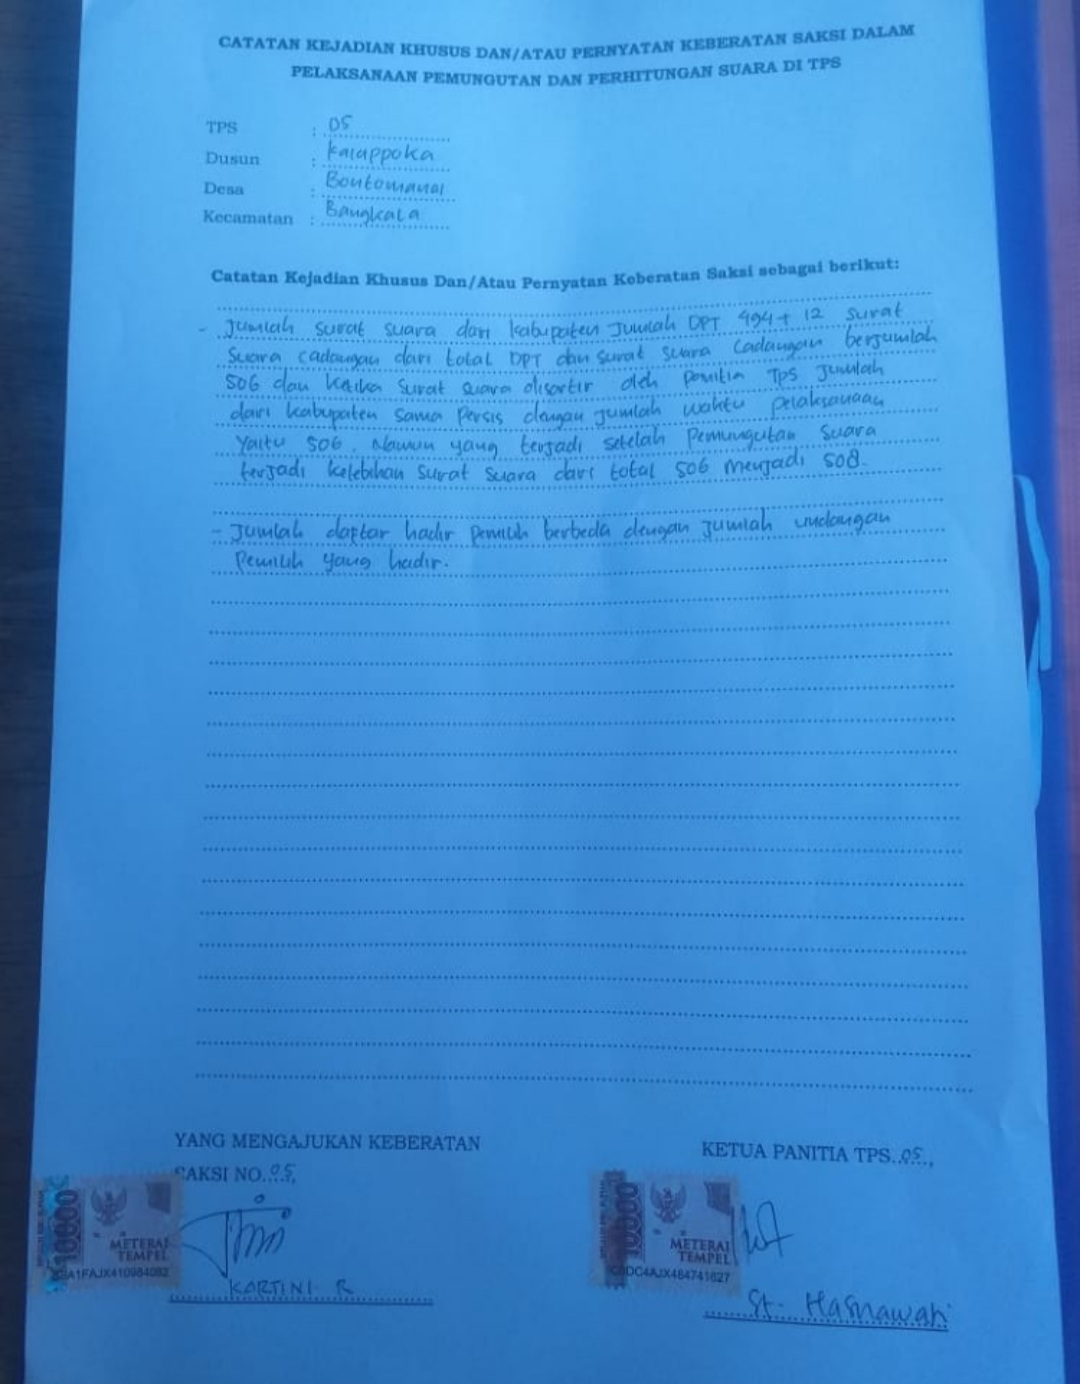 CATATAN KEJADIAN KHUSUS DAN/ATAU PERNYATAN KEBERATAN SAKSI DALAM
PELAKSANAAN PEMUNGUTAN DAN PERHITUNGAN SUARA DI TPS
TPS : 05
Dusun : Kalappoka
Desa : Bontomanai
Kecamatan : Bangkala
Catatan Kejadian Khusus Dan/Atau Pernyatan Keberatan Saksi sebagai berikut:
- Jumlah surat suara dari kabupaten Jumlah DPT 494 + 12 surat
Suara cadangan dari total DPT dan surat suara cadangan berjumlah
506 dan ketika surat suara disortir oleh panitia TPS Jumlah
dari kabupaten sama persis dengan jumlah waktu pelaksanaan
yaitu 506. Namun yang terjadi setelah Pemungutan Suara
terjadi kelebihan surat suara dari total 506 menjadi 508.
- Jumlah daftar hadir pemilih berbeda dengan jumlah undangan
Pemilih yang hadir.
YANG MENGAJUKAN KEBERATAN
SAKSI NO.05,
KETUA PANITIA TPS.05.,
10000
METERAI
TEMPEL
10000
METERAI
TEMPEL
KARTINI. R
St. Hasnawati